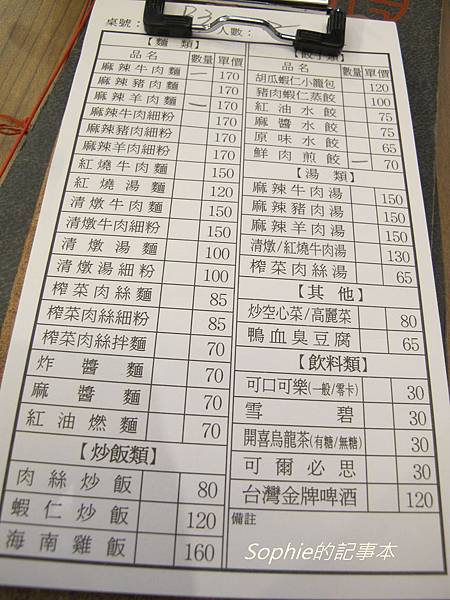 桌號：
人數：
【麵 類】
品名 數量 單價
麻辣牛肉麵 一 170
麻辣豬肉麵 170
麻辣羊肉麵 一 170
麻辣牛肉細粉 170
麻辣豬肉細粉 170
麻辣羊肉細粉 170
紅燒牛肉麵 150
紅燒湯麵 120
清燉牛肉麵 150
清燉牛肉細粉 150
清燉湯麵 100
清燉湯細粉 100
榨菜肉絲麵 85
榨菜肉絲細粉 85
榨菜肉絲拌麵 70
炸醬麵 70
麻醬麵 70
紅油燃麵 70
【炒飯類】
肉絲炒飯 80
蝦仁炒飯 120
海南雞飯 160
【餃子類】
品名 數量 單價
胡瓜蝦仁小籠包 120
豬肉蝦仁蒸餃 100
紅油水餃 75
麻醬水餃 75
原味水餃 65
鮮肉煎餃 一 70
【湯 類】
麻辣牛肉湯 150
麻辣豬肉湯 150
麻辣羊肉湯 150
清燉/紅燒牛肉湯 130
榨菜肉絲湯 65
【其 他】
炒空心菜/高麗菜 80
鴨血臭豆腐 65
【飲料類】
可口可樂(一般/零卡) 30
雪碧 30
開喜烏龍茶(有糖/無糖) 30
可爾必思 30
台灣金牌啤酒 120
備註
Sophie的記事本